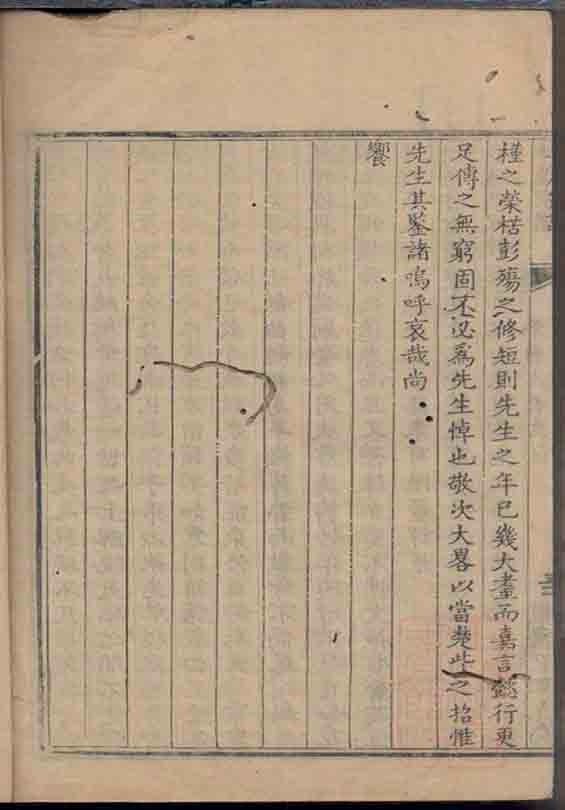 槿之榮楛彭殤之修短則先生之年已幾大耋而嘉言懿行更
足傳之無窮固不必為先生悼也敬次大畧以當楚些之招惟
先生其鑒諸嗚呼哀哉尚
饗